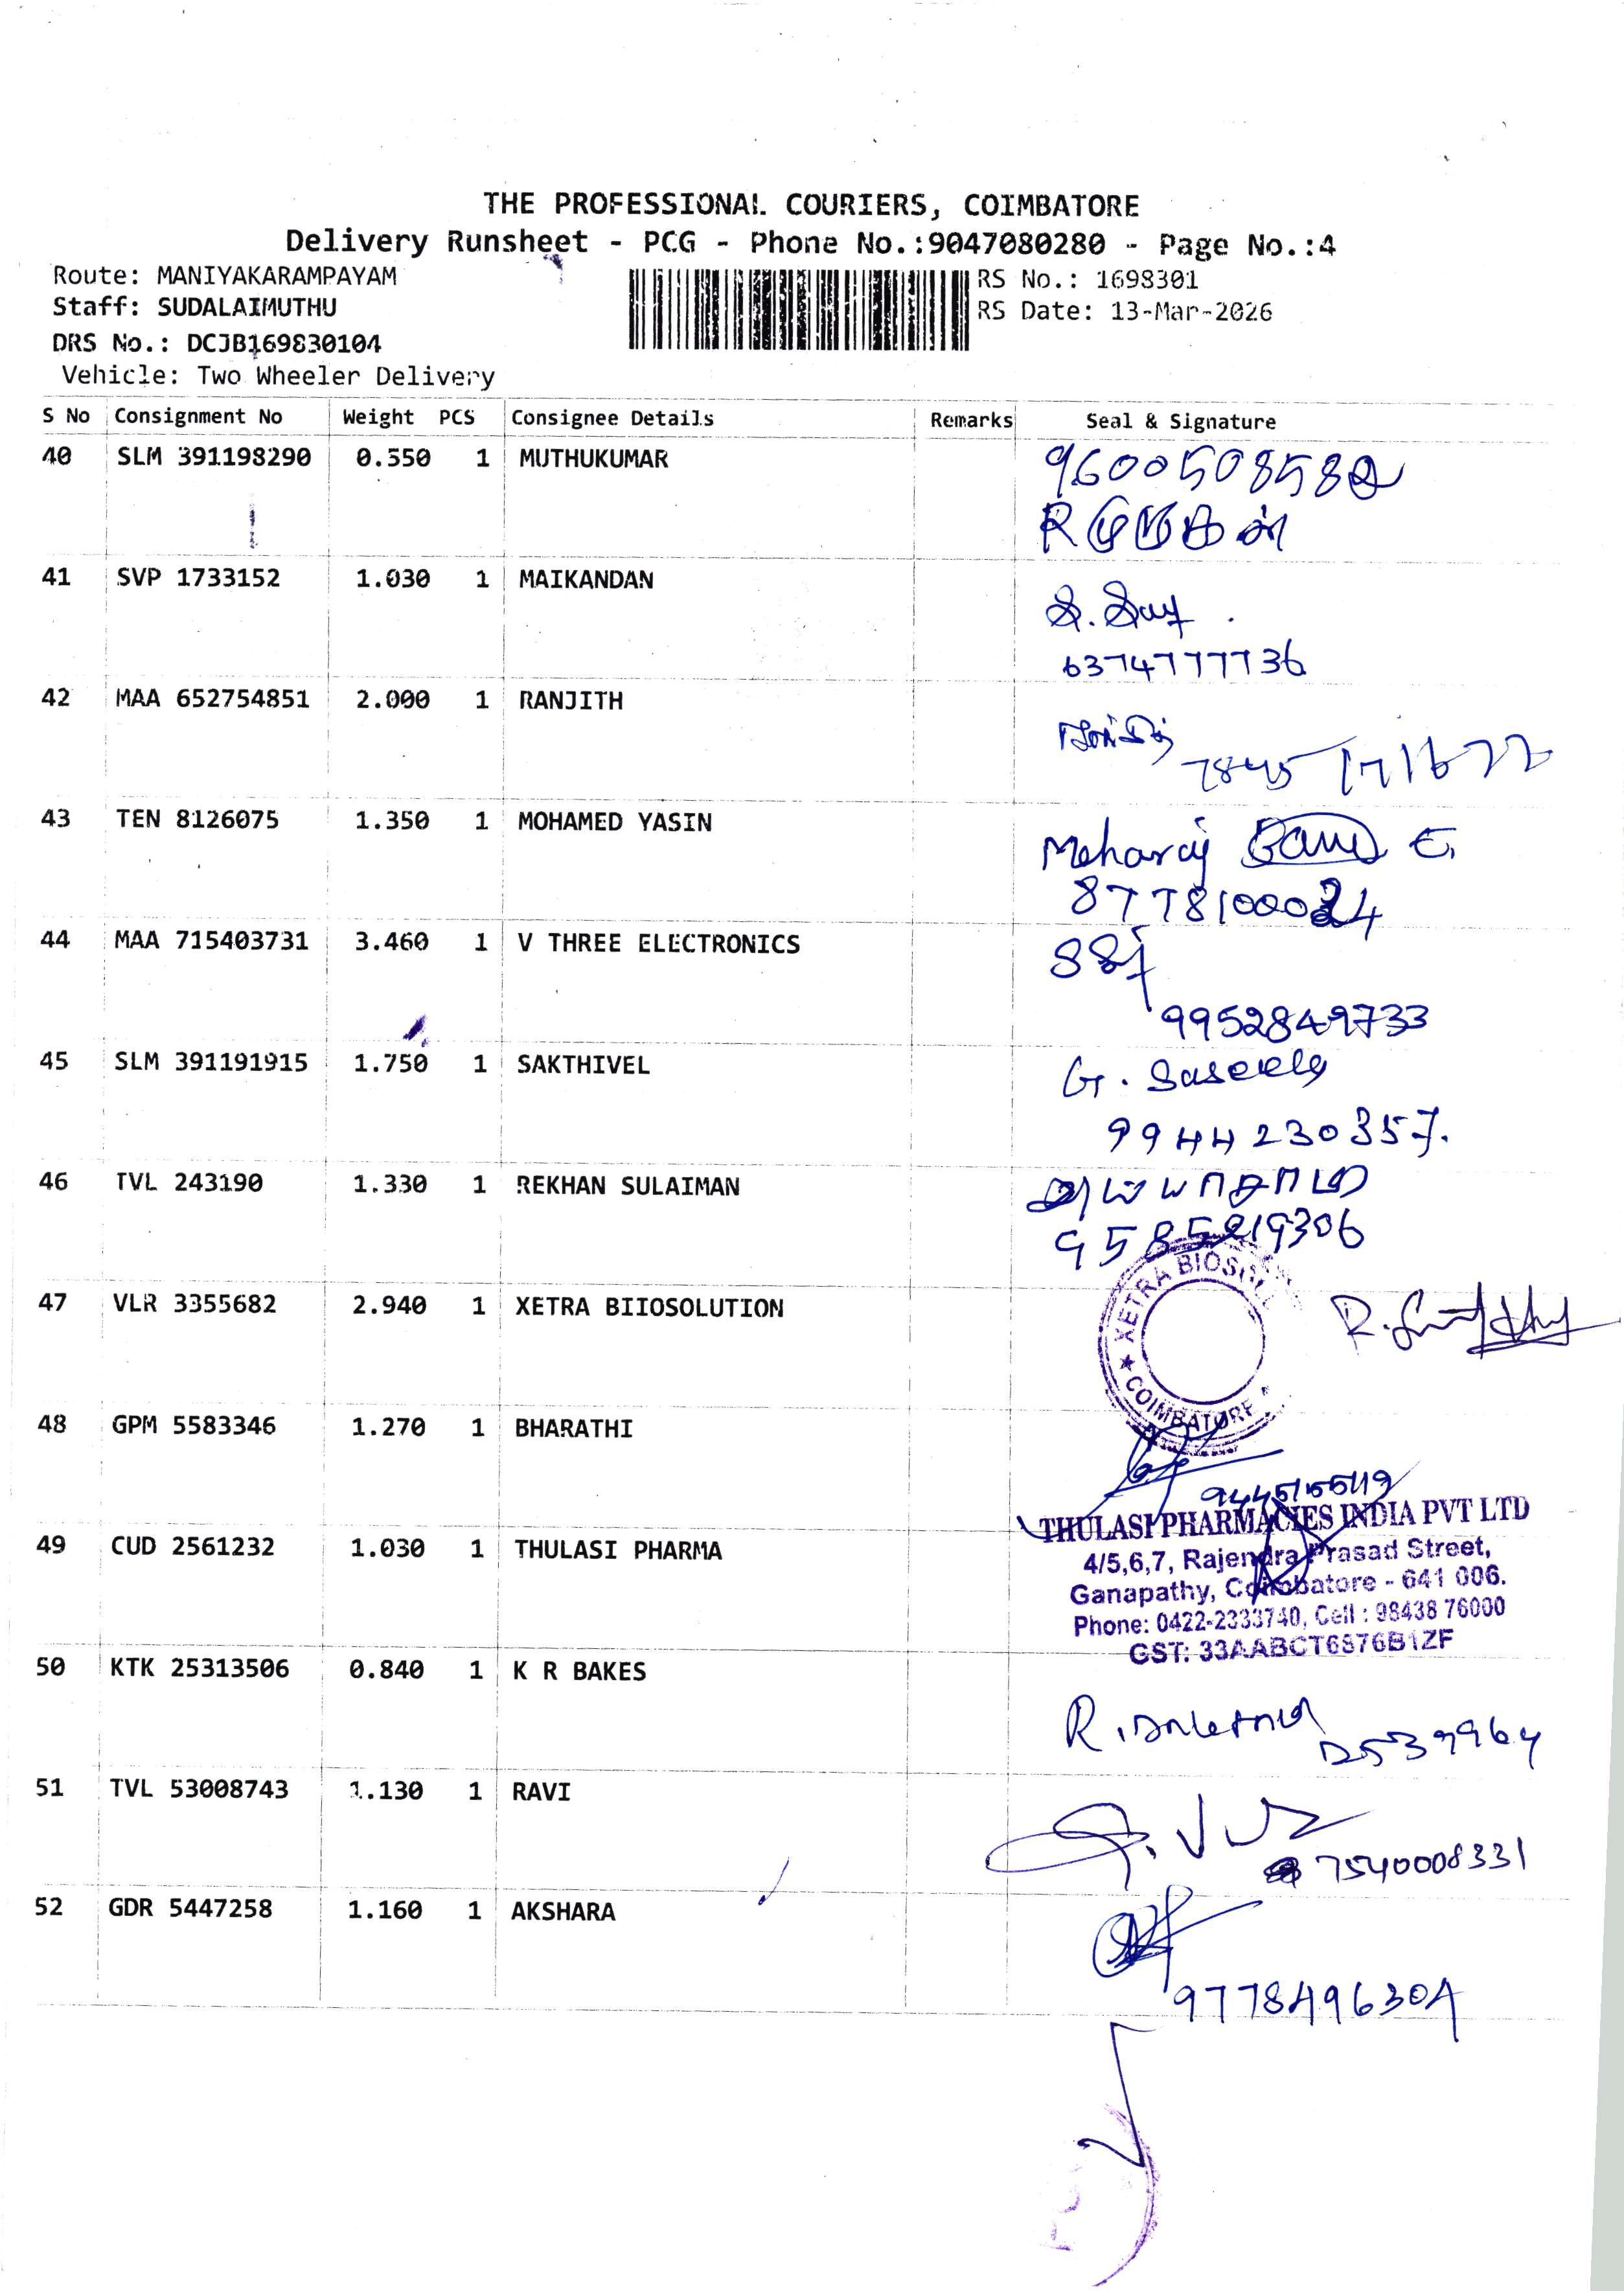 THE PROFESSIONAL COURIERS, COIMBATORE
Delivery Runsheet - PCG - Phone No.:9047080280 - Page No.:4
Route: MANIYAKARAMPAYAM
RS No.: 1698301
Staff: SUDALAIMUTHU
RS Date: 13-Mar-2026
DRS No.: DCJB169830104
Vehicle: Two Wheeler Delivery
S No Consignment No Weight PCS Consignee Details Remarks Seal & Signature
40 SLM 391198290 0.550 1 MUTHUKUMAR
9600508582
41 SVP 1733152 1.030 1 MAIKANDAN
6374777736
42 MAA 652754851 2.000 1 RANJITH
43 TEN 8126075 1.350 1 MOHAMED YASIN
Meharaj Banu E.
44 MAA 715403731 3.460 1 V THREE ELECTRONICS
9952849733
45 SLM 391191915 1.750 1 SAKTHIVEL
9944230357.
46 TVL 243190 1.330 1 REKHAN SULAIMAN
47 VLR 3355682 2.940 1 XETRA BIIOSOLUTION
XETRA
COIMBATORE
48 GPM 5583346 1.270 1 BHARATHI
49 CUD 2561232 1.030 1 THULASI PHARMA
THULASI PHARMACIES INDIA PVT LTD
4/5,6,7, Rajendra Prasad Street,
Ganapathy, Coimbatore - 641 006.
Phone: 0422-2333740, Cell : 98438 76000
GST: 33AABCT6876B1ZF
50 KTK 25313506 0.840 1 K R BAKES
51 TVL 53008743 1.130 1 RAVI
7540008331
52 GDR 5447258 1.160 1 AKSHARA
9778496304